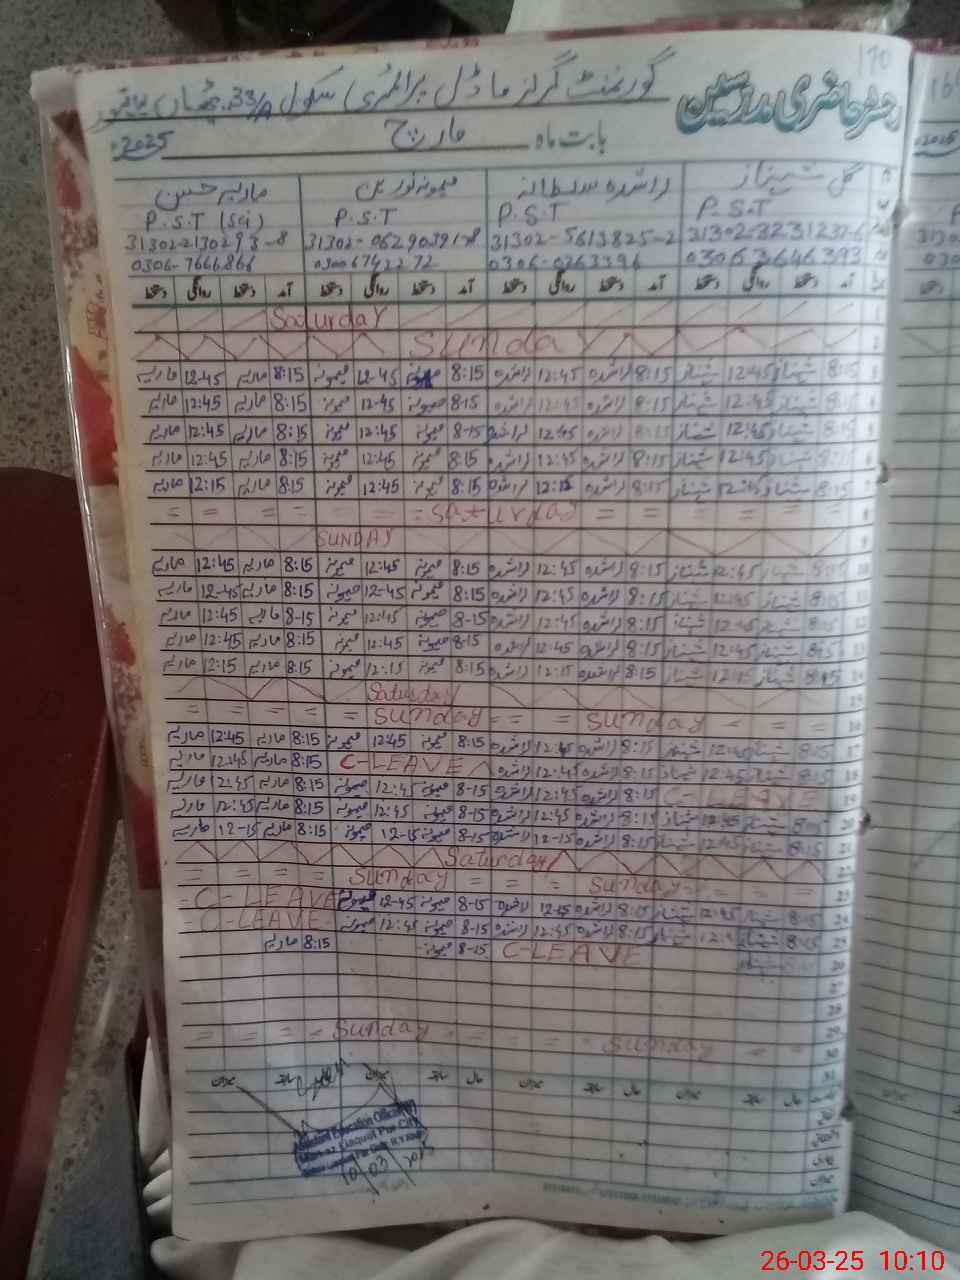 رجسٹر حاضری مدرسین
170
گورنمنٹ گرلز ماڈل پرائمری سکول 33/A
بابت ماہ مارچ 2025
گل شہناز راشدہ سلطانہ میمونہ نورین ماریہ حسین
P.S.T P.S.T P.S.T P.S.T (Sci)
31302-3231237-6 31302-5613825-2 31302-0629039-8 31302-2130293-8
03063646393 0306-0263396 03006742272 0306-7666866
آمد دستخط روانگی دستخط آمد دستخط روانگی دستخط آمد دستخط روانگی دستخط آمد دستخط روانگی دستخط
1 Saturday
2 Sunda
3 8:15 شہناز 12:45 شہناز 8:15 راشدہ 12:45 راشدہ 8:15 12-45 میمونہ 8:15 ماریہ 12-45 ماریہ
4 8:15 شہناز 12:45 شہناز 8:15 راشدہ 12:45 راشدہ 8-15 میمونہ 12-45 میمونہ 8:15 ماریہ 12:45 ماریہ
5 8:15 شہناز 12:45 شہناز 8:15 راشدہ 12:45 راشدہ 8-15 میمونہ 12:45 میمونہ 8:15 ماریہ 12:45 ماریہ
6 8:15 شہناز 12:45 شہناز 8:15 راشدہ 12:45 راشدہ 8:15 میمونہ 12:45 میمونہ 8:15 ماریہ 12:45 ماریہ
7 8:15 شہناز شہناز 8:15 راشدہ راشدہ 8:15 میمونہ 12:45 میمونہ 8:15 ماریہ 12:15 ماریہ
8 = = = = = Saturday = = = = = =
9 SUNDAY
10 8:15 شہناز 12:45 شہناز 8:15 راشدہ 12:45 راشدہ 8:15 میمونہ 12:45 میمونہ 8:15 ماریہ 12:45 ماریہ
11 8:15 شہناز 12:45 شہناز 8:15 راشدہ 12:45 راشدہ 8:15 میمونہ 12-45 میمونہ 8:15 ماریہ 12-45 ماریہ
12 8:15 شہناز 12:45 شہناز 8:15 راشدہ 12:45 راشدہ 8-15 میمونہ 12:45 میمونہ 8-15 ماریہ 12:45 ماریہ
13 شہناز 12:45 شہناز 8:15 راشدہ 12:45 راشدہ 8-15 میمونہ 12:45 میمونہ 8:15 ماریہ 12:45 ماریہ
14 شہناز 12:15 شہناز 8:15 راشدہ 12:15 راشدہ 8:15 میمونہ 12:15 میمونہ 8:15 ماریہ 12:15 ماریہ
15 Saturday
16 = = = = = Sunday = = = Sunday = = =
17 8:15 شہناز 12:45 شہناز 8:15 راشدہ 12:45 راشدہ 8:15 میمونہ 12:45 میمونہ 8:15 ماریہ 12:45 ماریہ
18 8:15 شہناز 12:45 شہناز 8:15 راشدہ 12:45 راشدہ C-LEAVE 8:15 ماریہ 12:45 ماریہ
19 C-LEAVE 8:15 راشدہ 12:45 راشدہ 8-15 میمونہ 12:45 میمونہ 8:15 ماریہ 12:45 ماریہ
20 8:15 شہناز 12:45 شہناز 8:15 راشدہ 12:45 راشدہ 8-15 میمونہ 12:45 میمونہ 8:15 ماریہ 12:45 ماریہ
21 8:15 شہناز 12:45 شہناز 8:15 راشدہ 12-15 راشدہ 8-15 میمونہ 12-15 میمونہ 8:15 ماریہ 12-15 ماریہ
22 Saturday
23 = = = = Sunday = = = Sunday = =
24 8:15 شہناز 12:45 شہناز 8:15 راشدہ 12-15 راشدہ 8-15 میمونہ 12-45 میمونہ C-LEAVE
25 8:15 شہناز شہناز 8:15 راشدہ 12:45 راشدہ 8-15 میمونہ 12:45 میمونہ C-LEAVE
26 شہناز C-LEAVE 8-15 میمونہ 8:15 ماریہ
27
28
29
30 = = = = Sunday = = = = = Sunday = =
31
Assistant Education Officer
Markaz Liaquat Pur City
10/03/2025
26-03-25 10:10